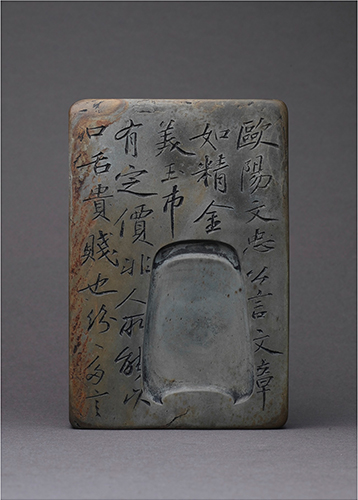 歐陽文忠公言文章
如精金
美玉市
有定價非人所能以
口舌貴賤也紛〻多言